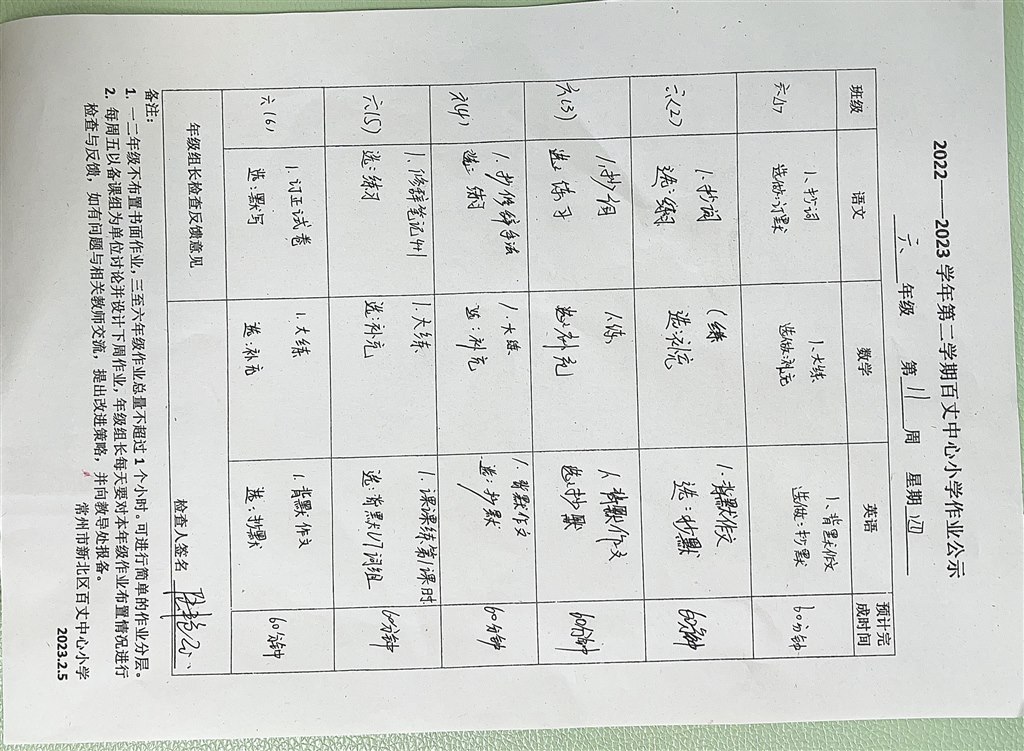 2022——2023 学年第二学期百丈中心小学作业公示
六、 年级 第 11 周 星期 四
班级 语文 数学 英语 预计完成时间
六(1) 1、抄词 1、大练 1、背默作文 60分钟
选做:订默 选做:补充 选做:抄默
六(2) 1、抄词 1、练 1、背默作文 60分钟
选:练习 选:补充 选:抄默
六(3) 1、抄词 1、练 1、背默作文 60分钟
选:练习 选:补充 选:抄默
六(4) 1、抄修辞手法 1、大练 1、背默作文 60分钟
选:练习 选:补充 选:抄默
六(5) 1、修辞笔记 1、大练 1、课课练第1课时 60分钟
选:练习 选:补充 选:背默U7词组
六(6) 1、订正试卷 1、大练 1、背默作文 60分钟
选:默写 选:补充 选:抄默
年级组长检查反馈意见 检查人签名
备注:
1. 一二年级不布置书面作业,三至六年级作业总量不超过 1 个小时。可进行简单的作业分层。
2. 每周五以备课组为单位讨论并设计下周作业,年级组长每天要对本年级作业布置情况进行
检查与反馈,如有问题与相关教师交流,提出改进策略,并向教导处报备。
常州市新北区百丈中心小学
2023.2.5